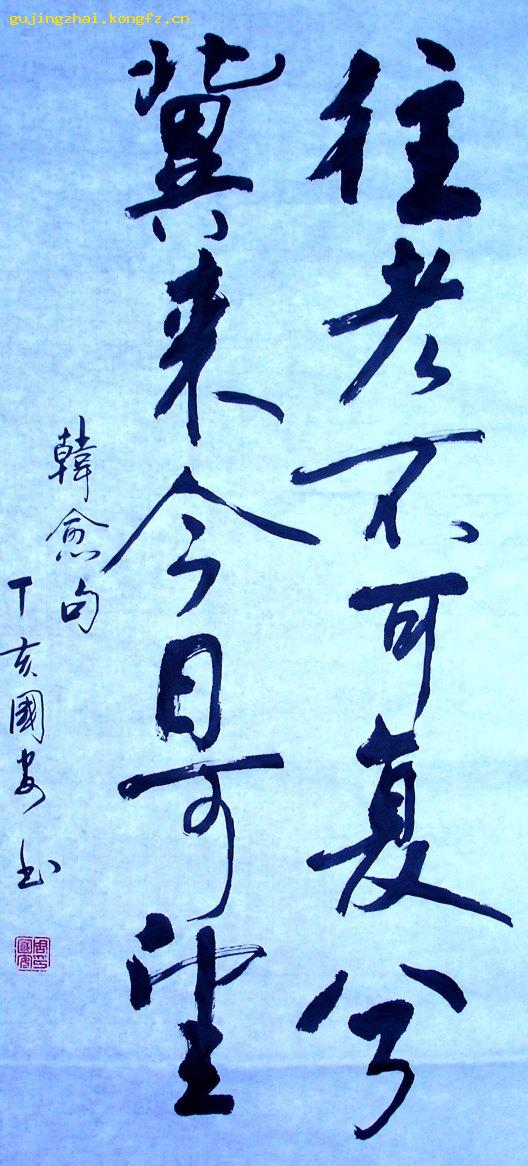 gujingzhai.kongfz.cn
往者不可复兮
冀来今日可望
韓愈句
丁亥國安书